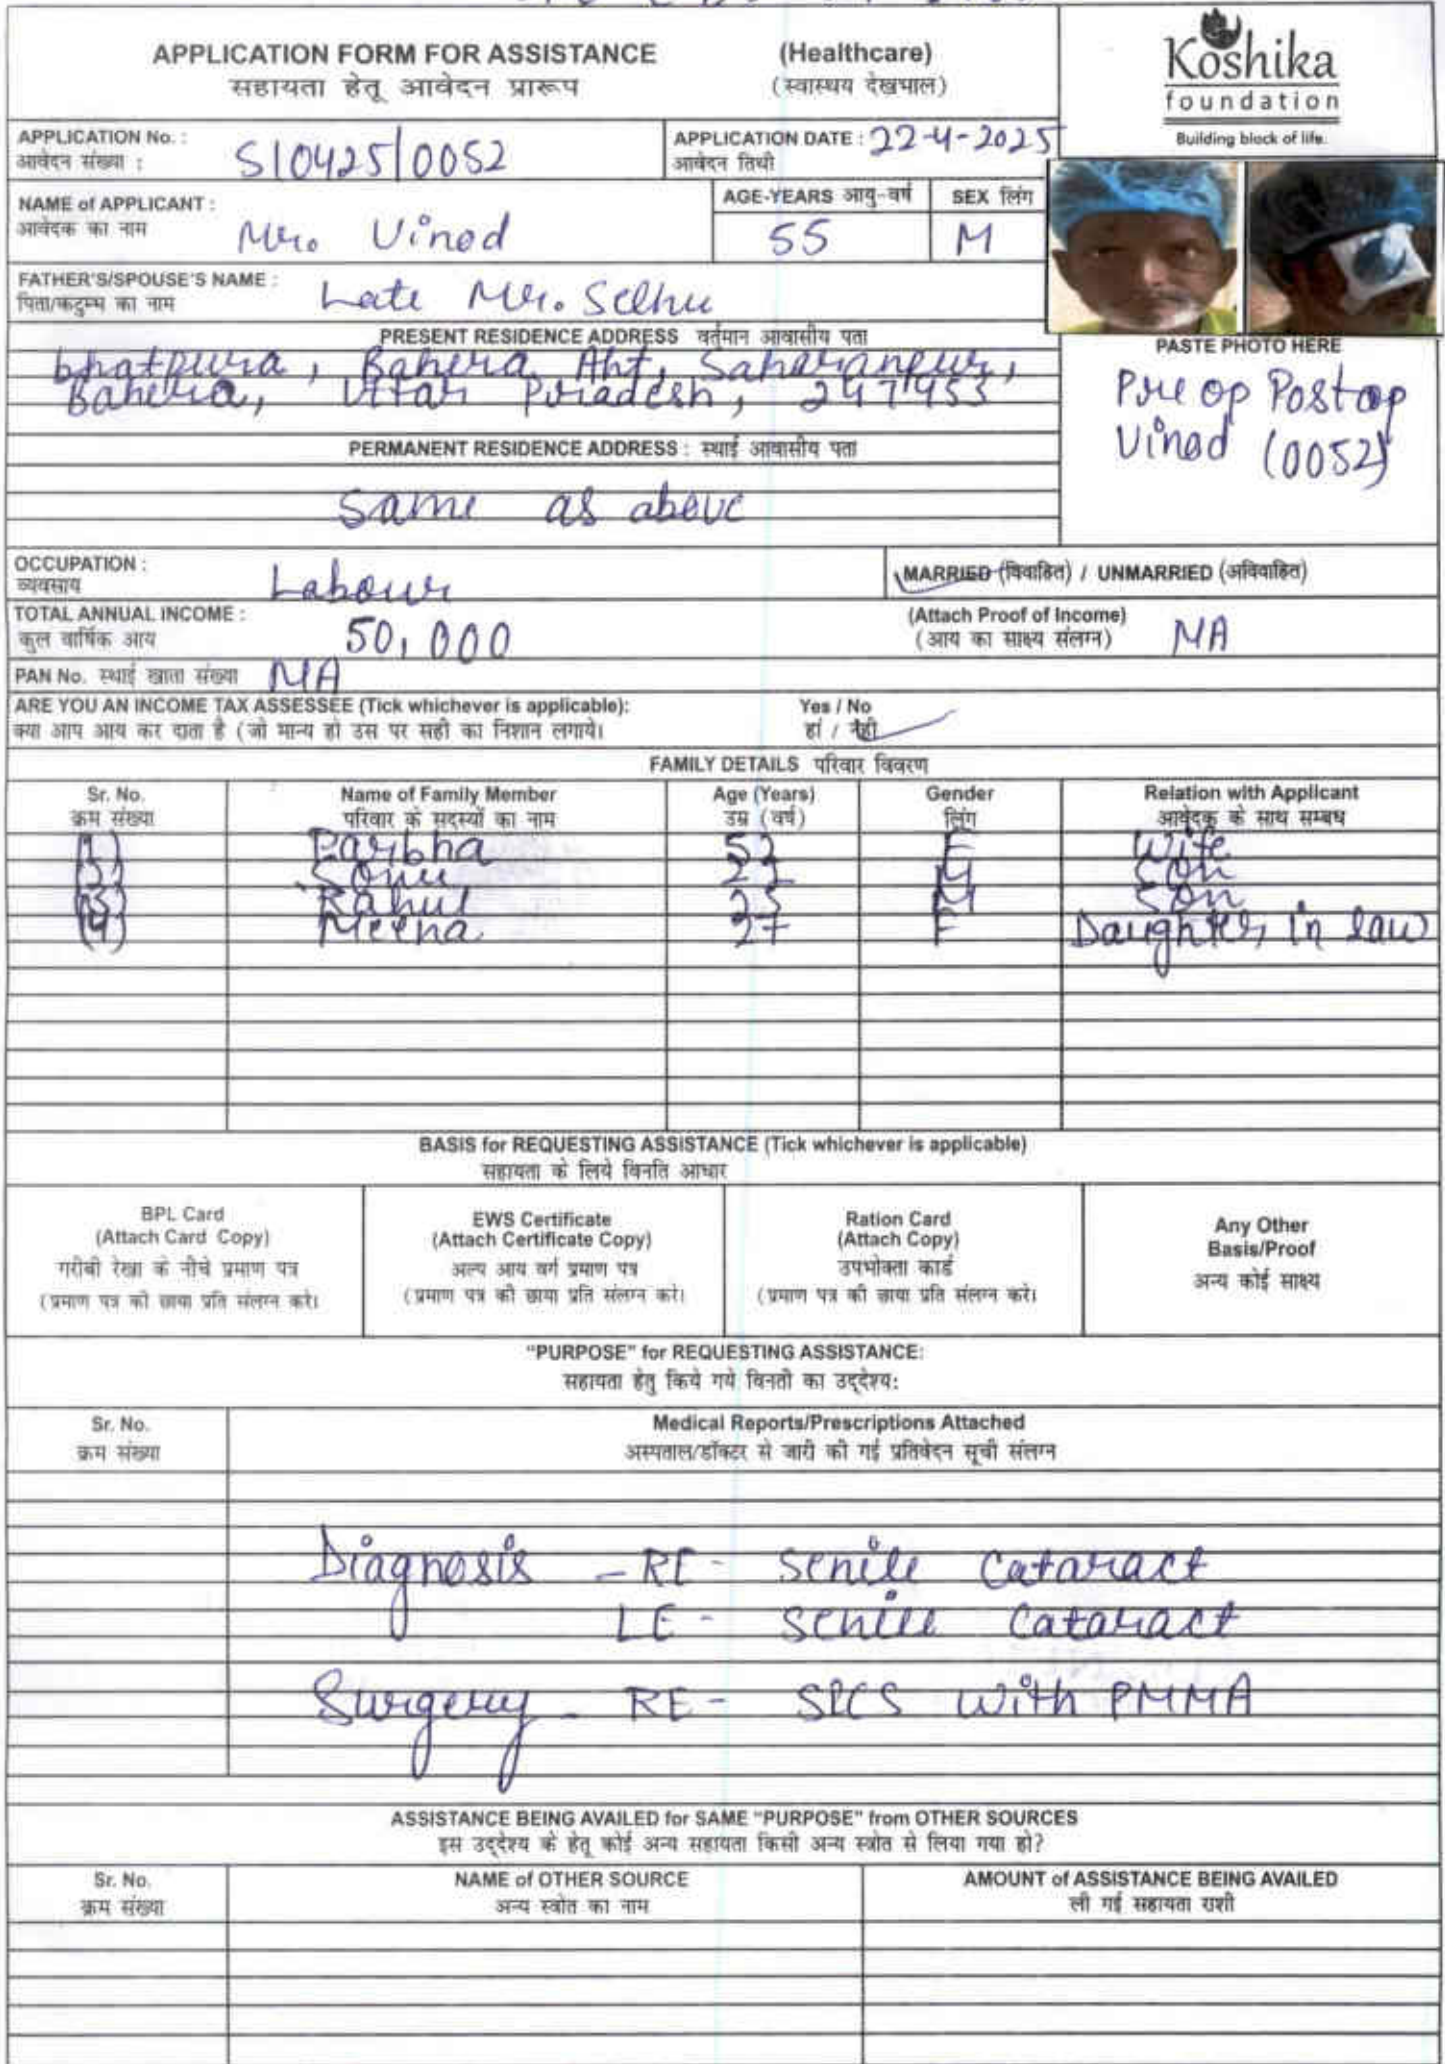 APPLICATION FORM FOR ASSISTANCE (Healthcare)
सहायता हेतू आवेदन प्रारूप (स्वास्थय देखभाल)
Koshika
foundation
Building block of life.
APPLICATION No. : S/0425/0052 APPLICATION DATE : 22-4-2025
आवेदन संख्या : आवेदन तिथी
NAME of APPLICANT : AGE-YEARS आयु-वर्ष SEX लिंग
आवेदक का नाम Mr. Vinod 55 M
FATHER'S/SPOUSE'S NAME :
पिता/कटुम्ब का नाम Late Mr.
PRESENT RESIDENCE ADDRESS वर्तमान आवासीय पता
bhatpura, Bahera Aht, Saharanpur,
Bahera, Uttar Pradesh, 247453
PASTE PHOTO HERE
Pre op Post op
Vinod (0052)
PERMANENT RESIDENCE ADDRESS : स्थाई आवासीय पता
Same as above
OCCUPATION :
व्यवसाय Labour MARRIED (विवाहित) / UNMARRIED (अविवाहित)
TOTAL ANNUAL INCOME : (Attach Proof of Income)
कुल वार्षिक आय 50,000 (आय का साक्ष्य संलग्न) NA
PAN No. स्थाई खाता संख्या NA
ARE YOU AN INCOME TAX ASSESSEE (Tick whichever is applicable): Yes / No
क्या आप आय कर दाता है (जो मान्य हो उस पर सही का निशान लगाये। हां / नही
FAMILY DETAILS परिवार विवरण
Sr. No. Name of Family Member Age (Years) Gender Relation with Applicant
क्रम संख्या परिवार के सदस्यों का नाम उम्र (वर्ष) लिंग आवेदक के साथ सम्बध
(1) Paribha F Wife
Sonu M Son
(3) Rahul M Son
(4) Meena 27 F Daughter in law
BASIS for REQUESTING ASSISTANCE (Tick whichever is applicable)
सहायता के लिये विनति आधार
BPL Card
(Attach Card Copy)
गरीबी रेखा के नीचे प्रमाण पत्र
(प्रमाण पत्र की छाया प्रति संलग्न करे।
EWS Certificate
(Attach Certificate Copy)
अल्प आय वर्ग प्रमाण पत्र
(प्रमाण पत्र की छाया प्रति संलग्न करे।
Ration Card
(Attach Copy)
उपभोक्ता कार्ड
(प्रमाण पत्र की छाया प्रति संलग्न करे।
Any Other
Basis/Proof
अन्य कोई साक्ष्य
"PURPOSE" for REQUESTING ASSISTANCE:
सहायता हेतु किये गये विनती का उद्देश्य:
Sr. No. Medical Reports/Prescriptions Attached
क्रम संख्या अस्पताल/डॉक्टर से जारी की गई प्रतिवेदन सूची संलग्न
Diagnosis - RE - Senile Cataract
LE - Senile Cataract
Surgery - RE - SICS with PMMA
ASSISTANCE BEING AVAILED for SAME "PURPOSE" from OTHER SOURCES
इस उद्देश्य के हेतु कोई अन्य सहायता किसी अन्य स्त्रोत से लिया गया हो?
Sr. No. NAME of OTHER SOURCE AMOUNT of ASSISTANCE BEING AVAILED
क्रम संख्या अन्य स्त्रोत का नाम ली गई सहायता राशी